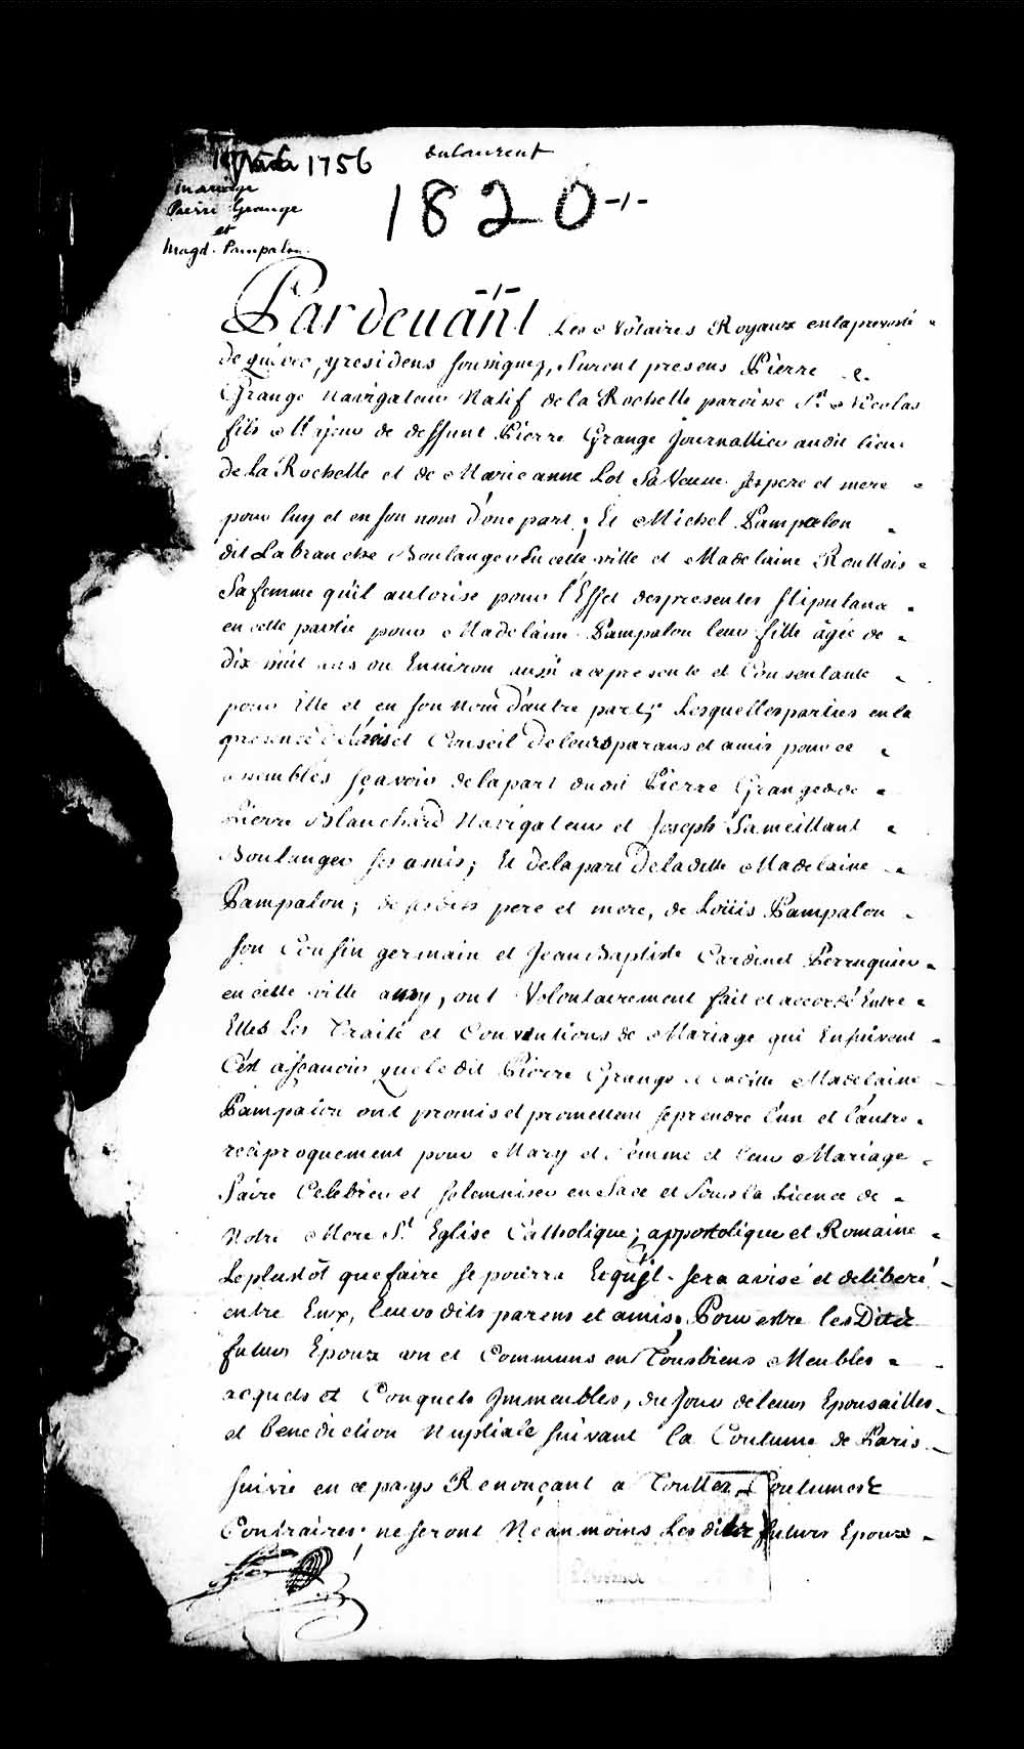 1756
Dulaurent
1820 -1-
Mariage
Pierre Grange
et
Magd. Pampalon
-1-
Pardeuant Les Notaires Royaux en la prevosté
de quebec, y residens soussignez, furent presens Pierre
Grange Navigateur Natif de la Rochelle paroisse St. Nicolas
fils Majeur de deffunt Pierre Grange Journallier audit lieu
de La Rochelle et de Marie anne Lot Sa Veuve. ses pere et mere
pour luy et en son nom d'une part; Et Michel Pampalon
dit Labranche Boulanger en cette ville et Madelaine
Sa femme qu'il autorise pour l'Effet des presentes stipulans
en cette partie pour Madelaine Pampalon leur fille âgée de
dix huit ans ou Environ aussi a ce presente et Consentante
pour Elle et en son nom d'autre part; Lesquelles parties en la
presence de l'avis et Conseil de leurs parans et amis pour ce
assemblés sçavoir de la part du dit Pierre Grange de
Pierre Blanchard Navigateur et Joseph Sameillant
Boulanger ses amis; Et de la part de la ditte Madelaine
Pampalon; de ses dits pere et mere, de Loüis Pampalon
son Cousin germain et Jean Baptiste Cardinet Perruquier
en cette ville aussy, ont Volontairement fait et accordé Entre
Elles Les Traité et Conventions de Mariage qui Ensuivent
C'est asçauoir que le dit Pierre Grange et Madelaine
Pampalon ont promis et promettent se prendre l'un et l'autre
reciproquement pour Mary et femme et leur Mariage
faire Celebrer et solemniser en face et sous la Licence de
Notre Mere Ste Eglise Catholique; appostolique et Romaine
Le plustôt que faire se pourra Et qu'jl sera avisé et deliberé
entre Eux, leurs dits parens et amis; Pour estre les Dits
futurs Epoux un et Communs en Tous biens Meubles
acquets et Conquets jmmeubles, du jour de leurs Epousailles
et benediction Nuptiale suivant la Coutume de Paris
suivie en ce pays Renonçant a Touttes Coutumes
Contraires; ne seront Neanmoins Les dits futurs Epoux